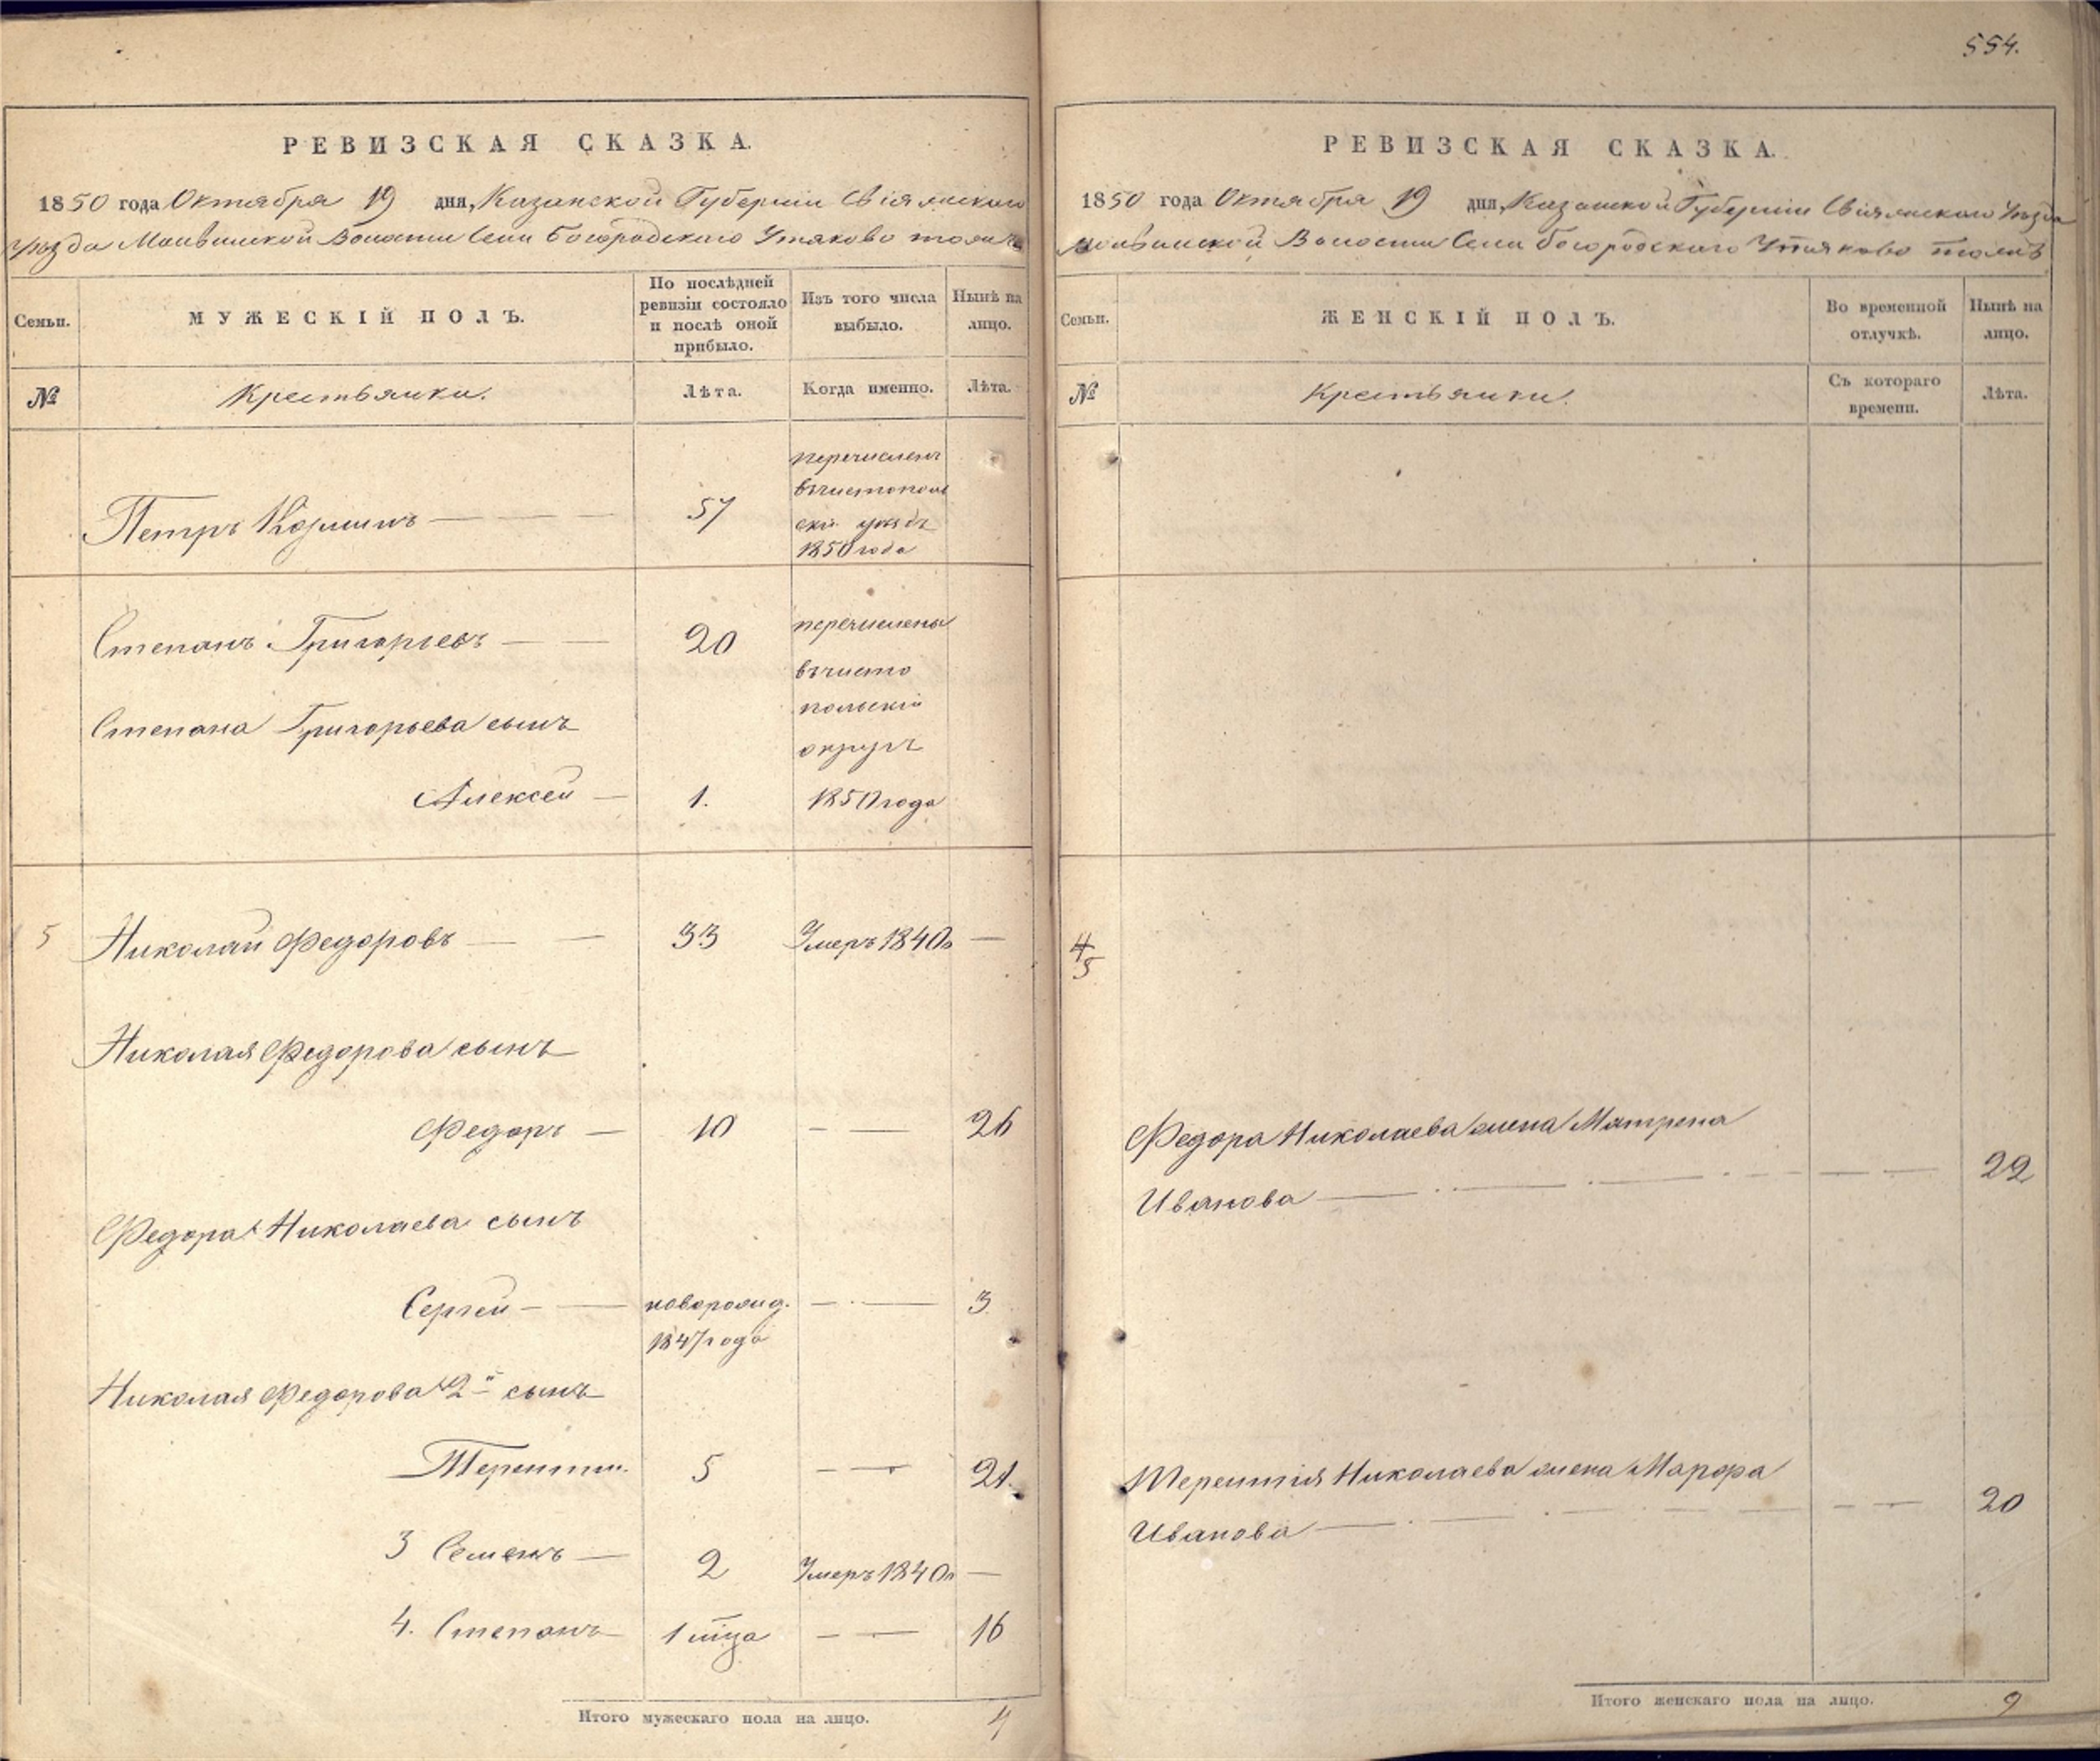 554.
РЕВИЗСКАЯ СКАЗКА.
1850 года Октября 19 дня, Казанской Губернии Свіяжскаго
Уѣзда Волости Села Богородскаго Утяково тожъ
Семьи.
МУЖЕСКІЙ ПОЛЪ.
По послѣдней
ревизіи состояло
и послѣ оной
прибыло.
Изъ того числа
выбыло.
Нынѣ на
лицо.
№
Крестьянки.
Лѣта.
Когда именно.
Лѣта.
перечисленъ
въ чистополь
скій уѣздъ
1850 года
Петръ Козминъ
57
Степанъ Григорьевъ
20
перечислены
въ чисто
Степана Григорьева сынъ
польскій
округъ
Алексей
1.
1850 года
5
Николай Федоровъ
33
Умеръ 1840г
Николая Федорова сынъ
Федоръ
10
26
Федора Николаева сынъ
Сергей
новорожд.
3
1847 года
Николая Федорова 2й сынъ
Терентій
5
21.
3 Семенъ
2
Умеръ 1840г
4. Степанъ
1 мца
16
Итого мужескаго пола на лицо.
4
РЕВИЗСКАЯ СКАЗКА.
1850 года Октября 19 дня, Казанской Губерніи Свіяжскаго Уѣзда
Волости Села Богородскаго Утяково тожъ
Семьи.
ЖЕНСКІЙ ПОЛЪ.
Во временной
отлучкѣ.
Нынѣ на
лицо.
№
Крестьянки.
Съ котораго
времени.
Лѣта.
4
5
Федора Николаева жена Матрена
Иванова
22
Терентія Николаева жена Марфа
Иванова
20
Итого женскаго пола на лицо.
2